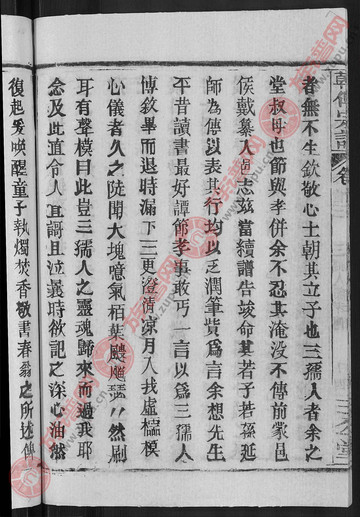 者無不生欽敬心士朝其立子也三孺人者余之
堂叔母也節與孝併余不忍其淹没不傳前蒙邑
侯戴纂入邑志兹當續譜告竣命其若子若孫延
師為傳以表其行均以乏潤筆貲為言余想先生
平昔讀書最好譚節孝事敢丐一言以為三孺人
博欽畢而退時漏下三更澄清凉月入我虛櫺模
心儀者久之陡聞大塊噫氣栢葉飃飃瑟〻然刷
耳有聲模曰此豈三孺人之靈魂歸來而過我耶
念及此直令人且謌且泣曩時欲記之深心油然
復起爰喚醒童子執燭焚香敬書春翁之所述傳
族譜网
www.zupu.cn